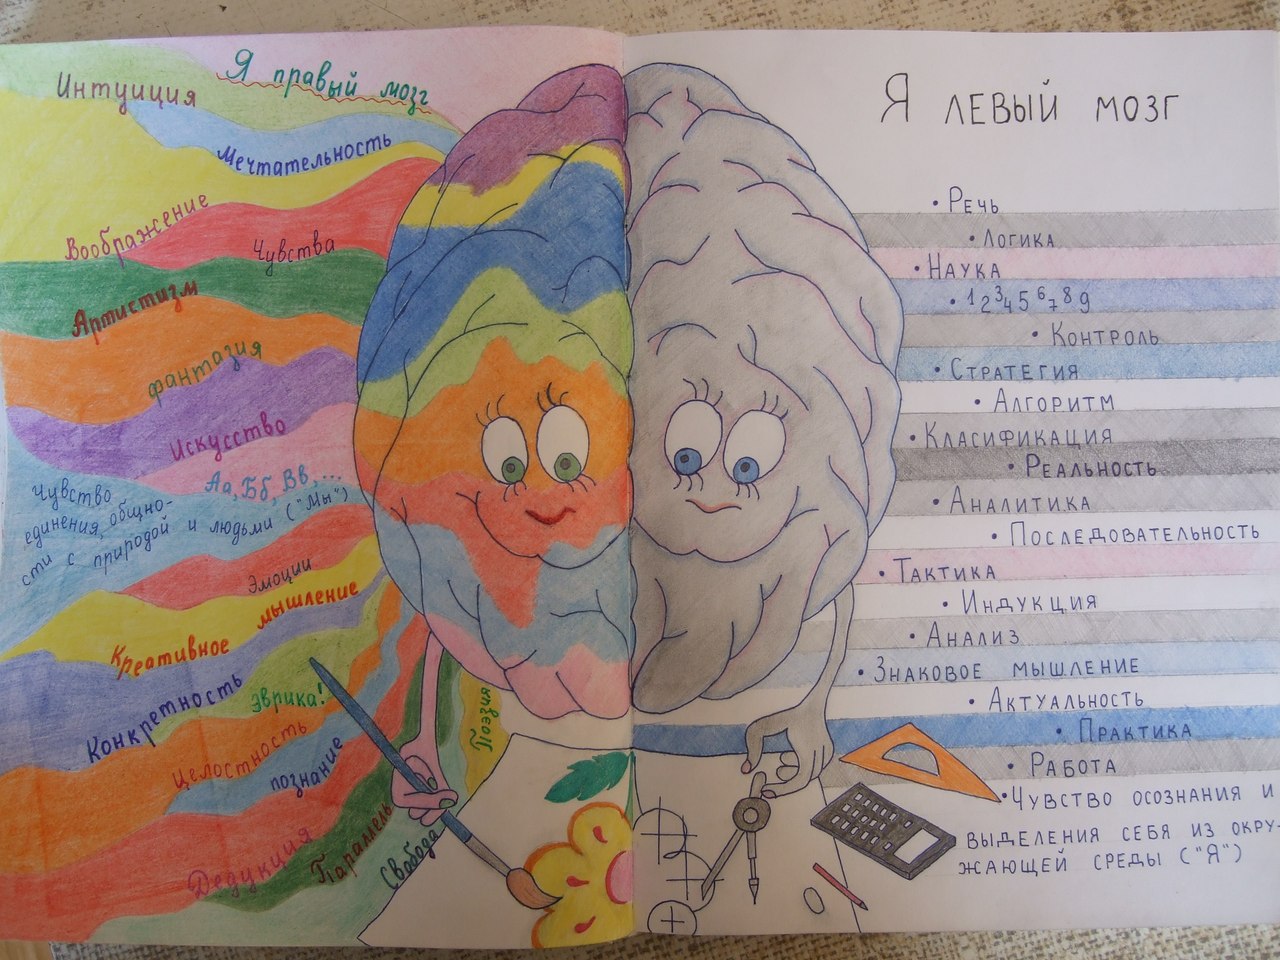 Я правый мозг
Интуиция
Мечтательность
Воображение
Чувства
Артистизм
фантазия
Искусство
Аа, Бб, Вв, ...
Чувство
единения, общно-
сти с природой и людьми ("Мы")
Эмоции
Креативное мышление
Конкретность
Эврика!
Целостность
познание
Дедукция
Параллель
Свобода
Поэзия
Я ЛЕВЫЙ МОЗГ
• РЕЧЬ
• ЛОГИКА
• НАУКА
• 123456789
• КОНТРОЛЬ
• СТРАТЕГИЯ
• АЛГОРИТМ
• КЛАСИФИКАЦИЯ
• РЕАЛЬНОСТЬ
• АНАЛИТИКА
• ПОСЛЕДОВАТЕЛЬНОСТЬ
• ТАКТИКА
• ИНДУКЦИЯ
• АНАЛИЗ
• ЗНАКОВОЕ МЫШЛЕНИЕ
• АКТУАЛЬНОСТЬ
• ПРАКТИКА
• РАБОТА
• ЧУВСТВО ОСОЗНАНИЯ И
ВЫДЕЛЕНИЯ СЕБЯ ИЗ ОКРУ-
ЖАЮЩЕЙ СРЕДЫ ("Я")